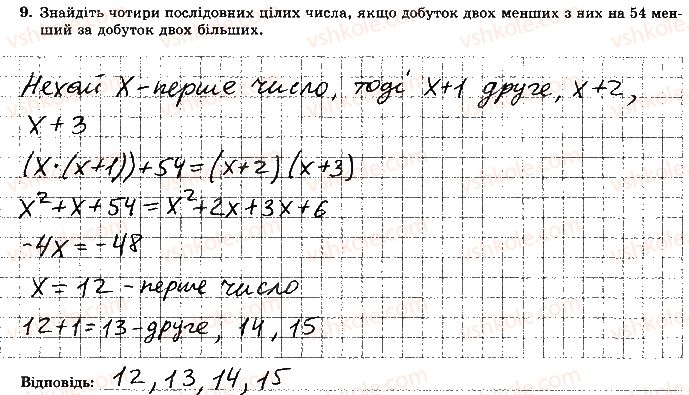 9. Знайдіть чотири послідовних цілих числа, якщо добуток двох менших з них на 54 мен-
ший за добуток двох більших.
Нехай X - перше число, тоді x+1 друге, x+2,
x+3
(x·(x+1))+54=(x+2)(x+3)
x²+x+54=x²+2x+3x+6
-4x=-48
x=12 - перше число
12+1=13-друге, 14, 15
Відповідь: 12, 13, 14, 15